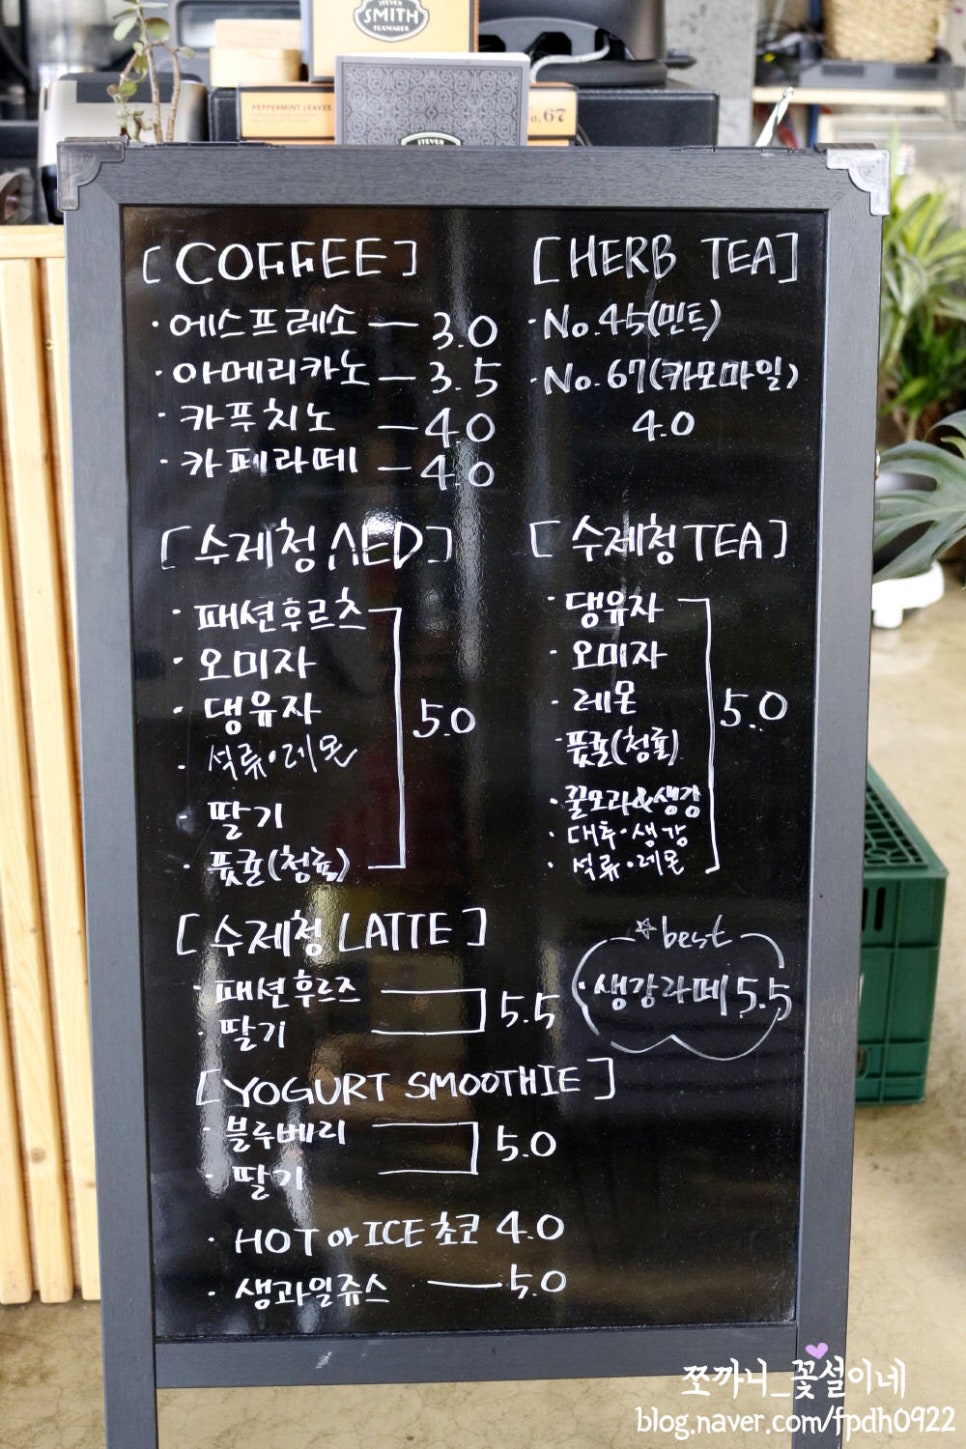 STEVEN
SMITH
TEAMAKER
PEPPERMINT LEAVES
No. 67
STEVEN
[COFFEE]
·에스프레소 — 3.0
·아메리카노 — 3.5
·카푸치노 — 4.0
·카페라떼 — 4.0
[HERB TEA]
·No.45(민트)
·No.67(카모마일)
4.0
[수제청 AED]
·패션후르츠
·오미자
·댕유자
·석류·레몬
·딸기
·풋귤(청귤)
5.0
[수제청 TEA]
·댕유자
·오미자
·레몬
·풋귤(청귤)
·꿀모과&생강
·대추·생강
·석류·레몬
5.0
[수제청 LATTE]
·패션후르츠
·딸기
5.5
☆best
·생강라떼 5.5
[YOGURT SMOOTHIE]
·블루베리
·딸기
5.0
·HOT 아 ICE 초코 4.0
·생과일쥬스 — 5.0
쪼까니_꽃설이네
blog.naver.com/fpdh0922